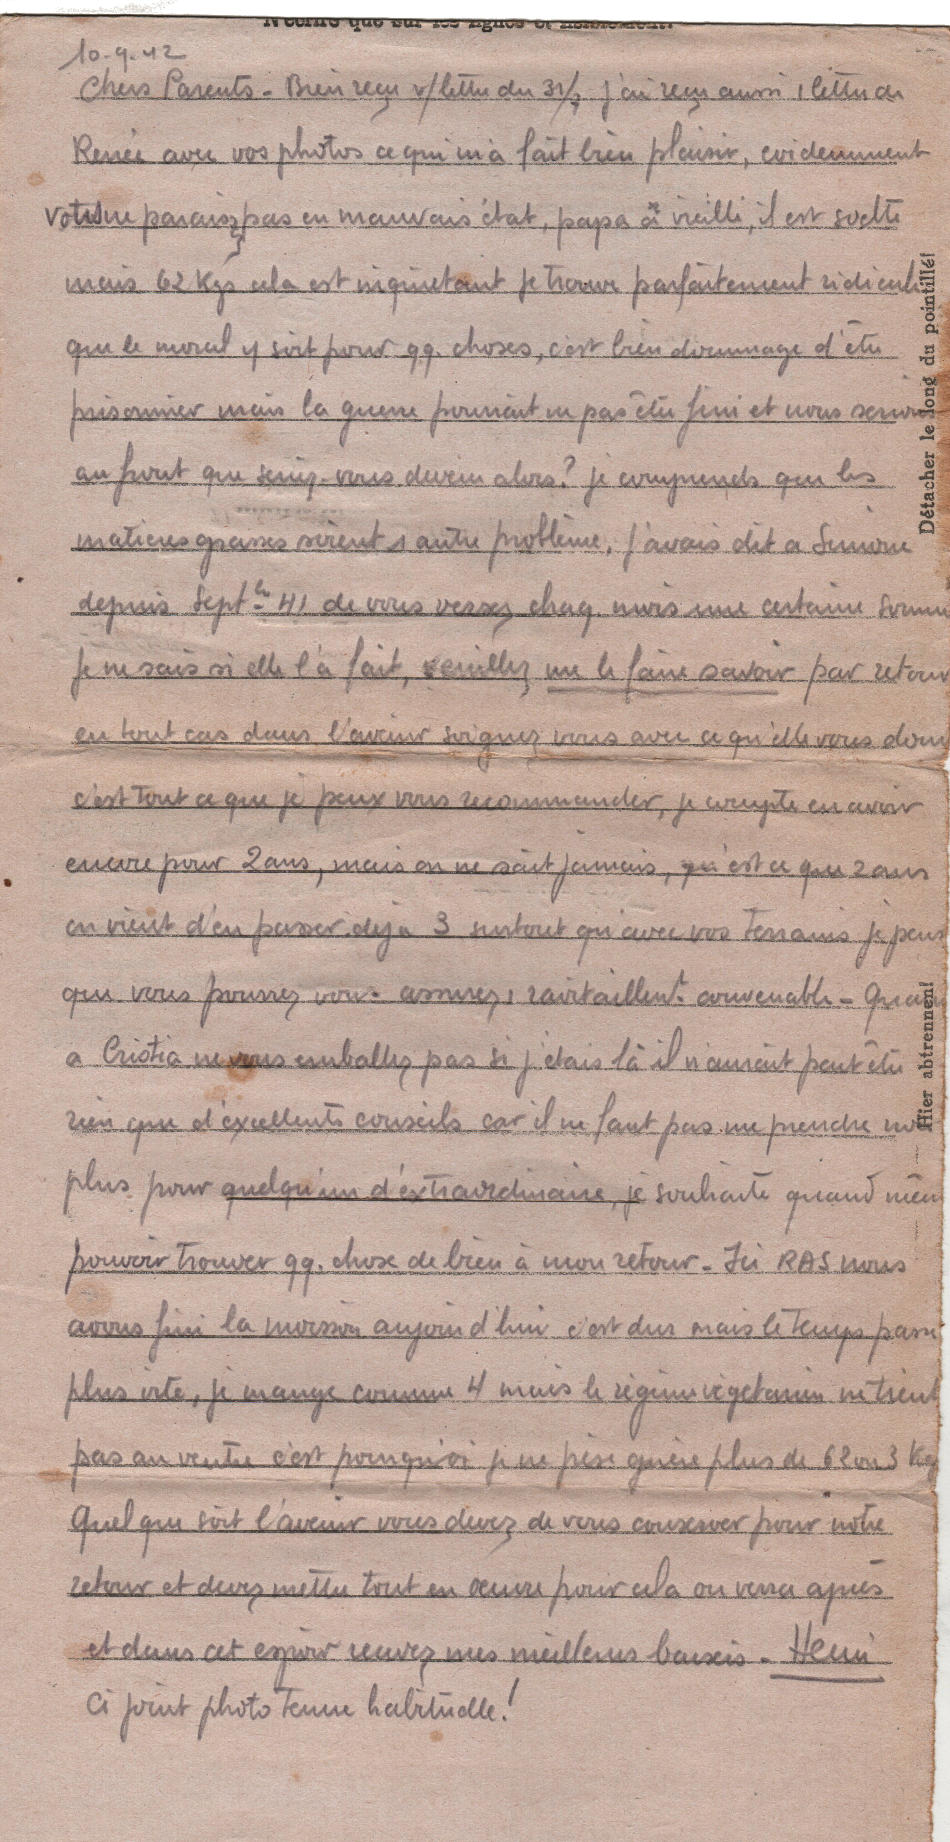 N'écrire que sur les lignes et lisiblement.
10-9-42
Chers Parents - Bien reçu v/lettre du 31/7 j'ai reçu aussi 1 lettre de
Renée avec vos photos ce qui m'a fait bien plaisir, evidemment
vous ne paraissez pas en mauvais état, papa a vieilli, il est svelte
mais 62 Kgs cela est inquietant je trouve parfaitement ridicule
que le moral y soit pour qq. choses, c'est bien dommage d'être
prisonnier mais la guerre pourrait ne pas être fini et nous serions
au front que seriez-vous devenu alors? je comprends que les
matieres grasses soient 1 autre problème, j'avais dit a Simone
depuis Sept.bre 41 de vous verser chaq. mois une certaine somme
je ne sais si elle l'a fait, veuillez me le faire savoir par retour
en tout cas dans l'avenir soignez vous avec ce qu'elle vous donne
c'est tout ce que je peux vous recommander, je compte en avoir
encore pour 2 ans, mais on ne sait jamais, qu'est ce que 2 ans
on vient d'en passer deja 3 surtout qu'avec vos terrains je pense
que vous pourrez vous assurez 1 ravitaillent. convenable - Quant
a Cristia ne vous emballez pas si j'étais là il n'aurait peut être
rien que d'excellents conseils car il ne faut pas me prendre non
plus pour quelqu'un d'extraordinaire, je souhaite quand même
pouvoir trouver qq. chose de bien à mon retour - Ici RAS nous
avons fini la moisson aujourd'hui c'est dur mais le temps passe
plus vite, je mange comme 4 mais le régime végétarien ne tient
pas au ventre c'est pourquoi je ne pèse guère plus de 62 ou 3 Kgs
Quelque soit l'avenir vous devez de vous conserver pour notre
retour et devez mettre tout en œuvre pour cela on verra après
et dans cet espoir recevez mes meilleurs baisers - Henri
Ci joint photo tenue habituelle!
Détacher le long du pointillé!
Hier abtrennen!